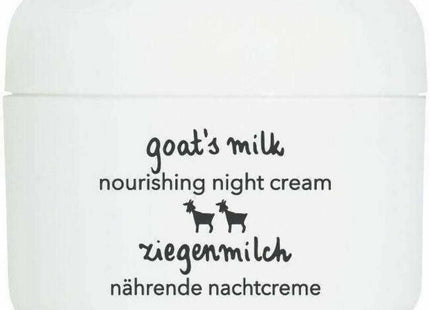 goat's milk
nourishing night cream
ziegenmilch
nährende nachtcreme